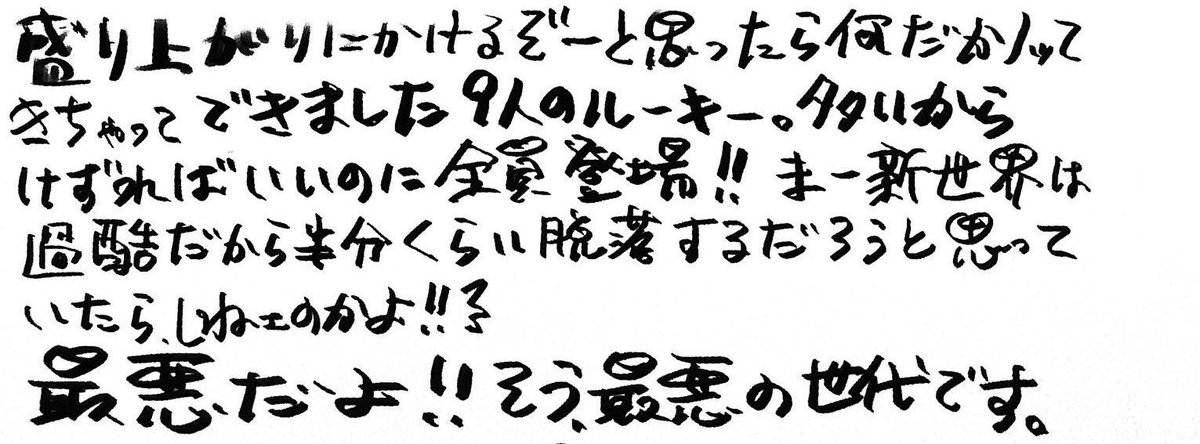 盛り上がりにかけるぞーと思ったら何だかノッて
きちゃってできました9人のルーキー。多いから
けずればいいのに全員登場!! まー新世界は
過酷だから半分くらい脱落するだろうと思って
いたら、しねェのかよ!!
最悪だよ!! そう、最悪の世代です。